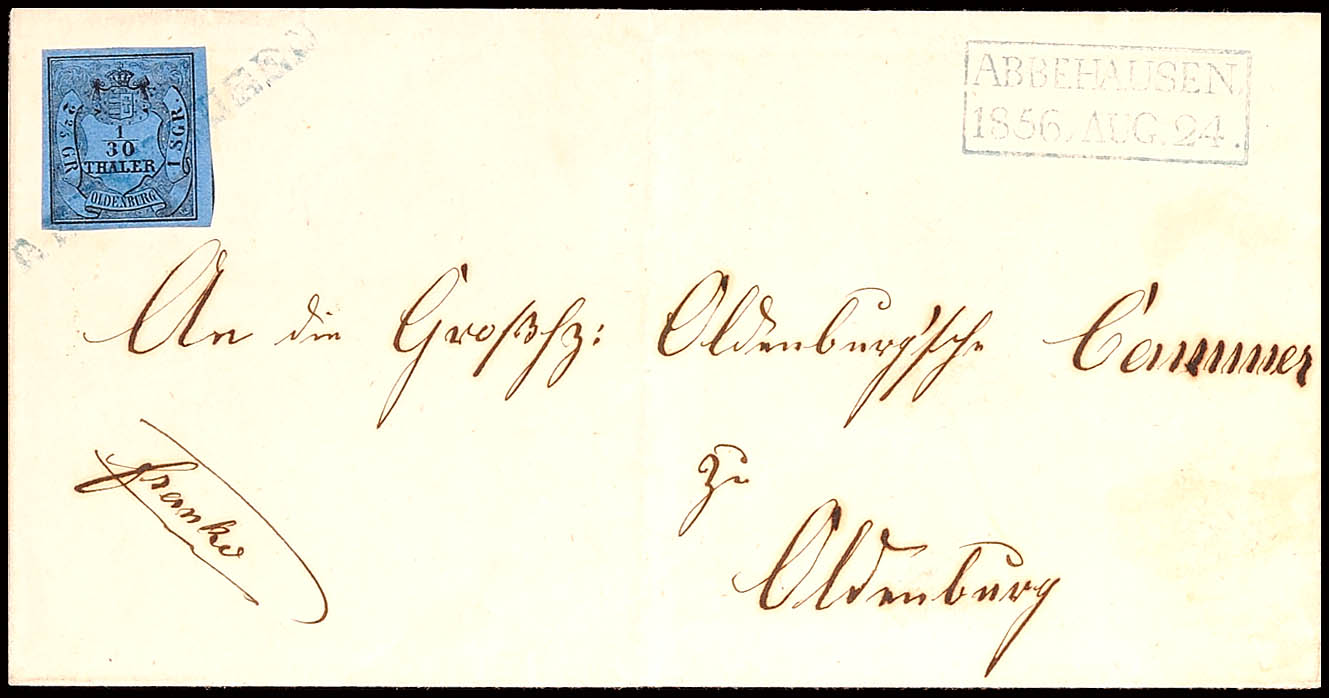 2⅖ GR.
1/30
THALER
1 SGR.
OLDENBURG
ABBEHAUSEN.
1856. AUG. 24.
An die Großhz: Oldenburg'sche Cammer
zu
Oldenburg
franko